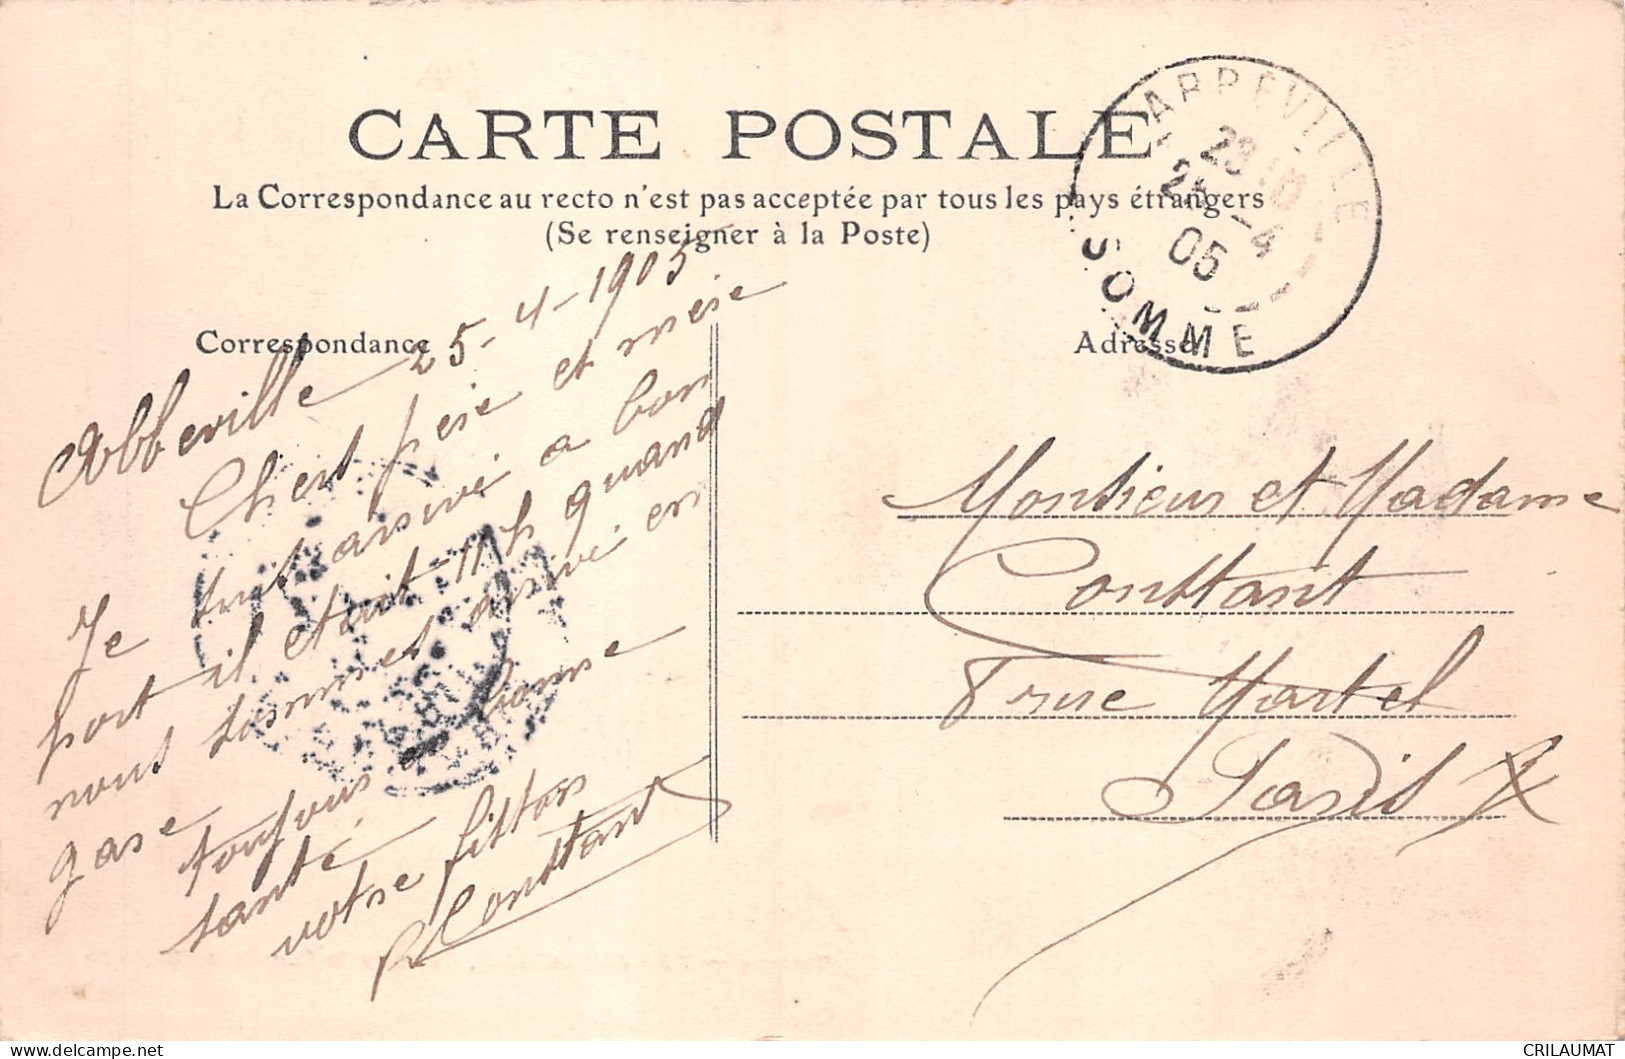 CARTE POSTALE
La Correspondance au recto n'est pas acceptée par tous les pays étrangers
(Se renseigner à la Poste)
ABBEVILLE
25 -4
05
SOMME
Correspondance
Adresse
Abbeville 25-4-1905
Chers père et mère
Je suis arrivé a bon
port il etait 11 h quand
nous sommes arrivé en
gare
toujours en bonne
santé
votre fiston
Constant
Monsieur et Madame
Conttant
8 rue Martel
Paris X
CRILAUMAT